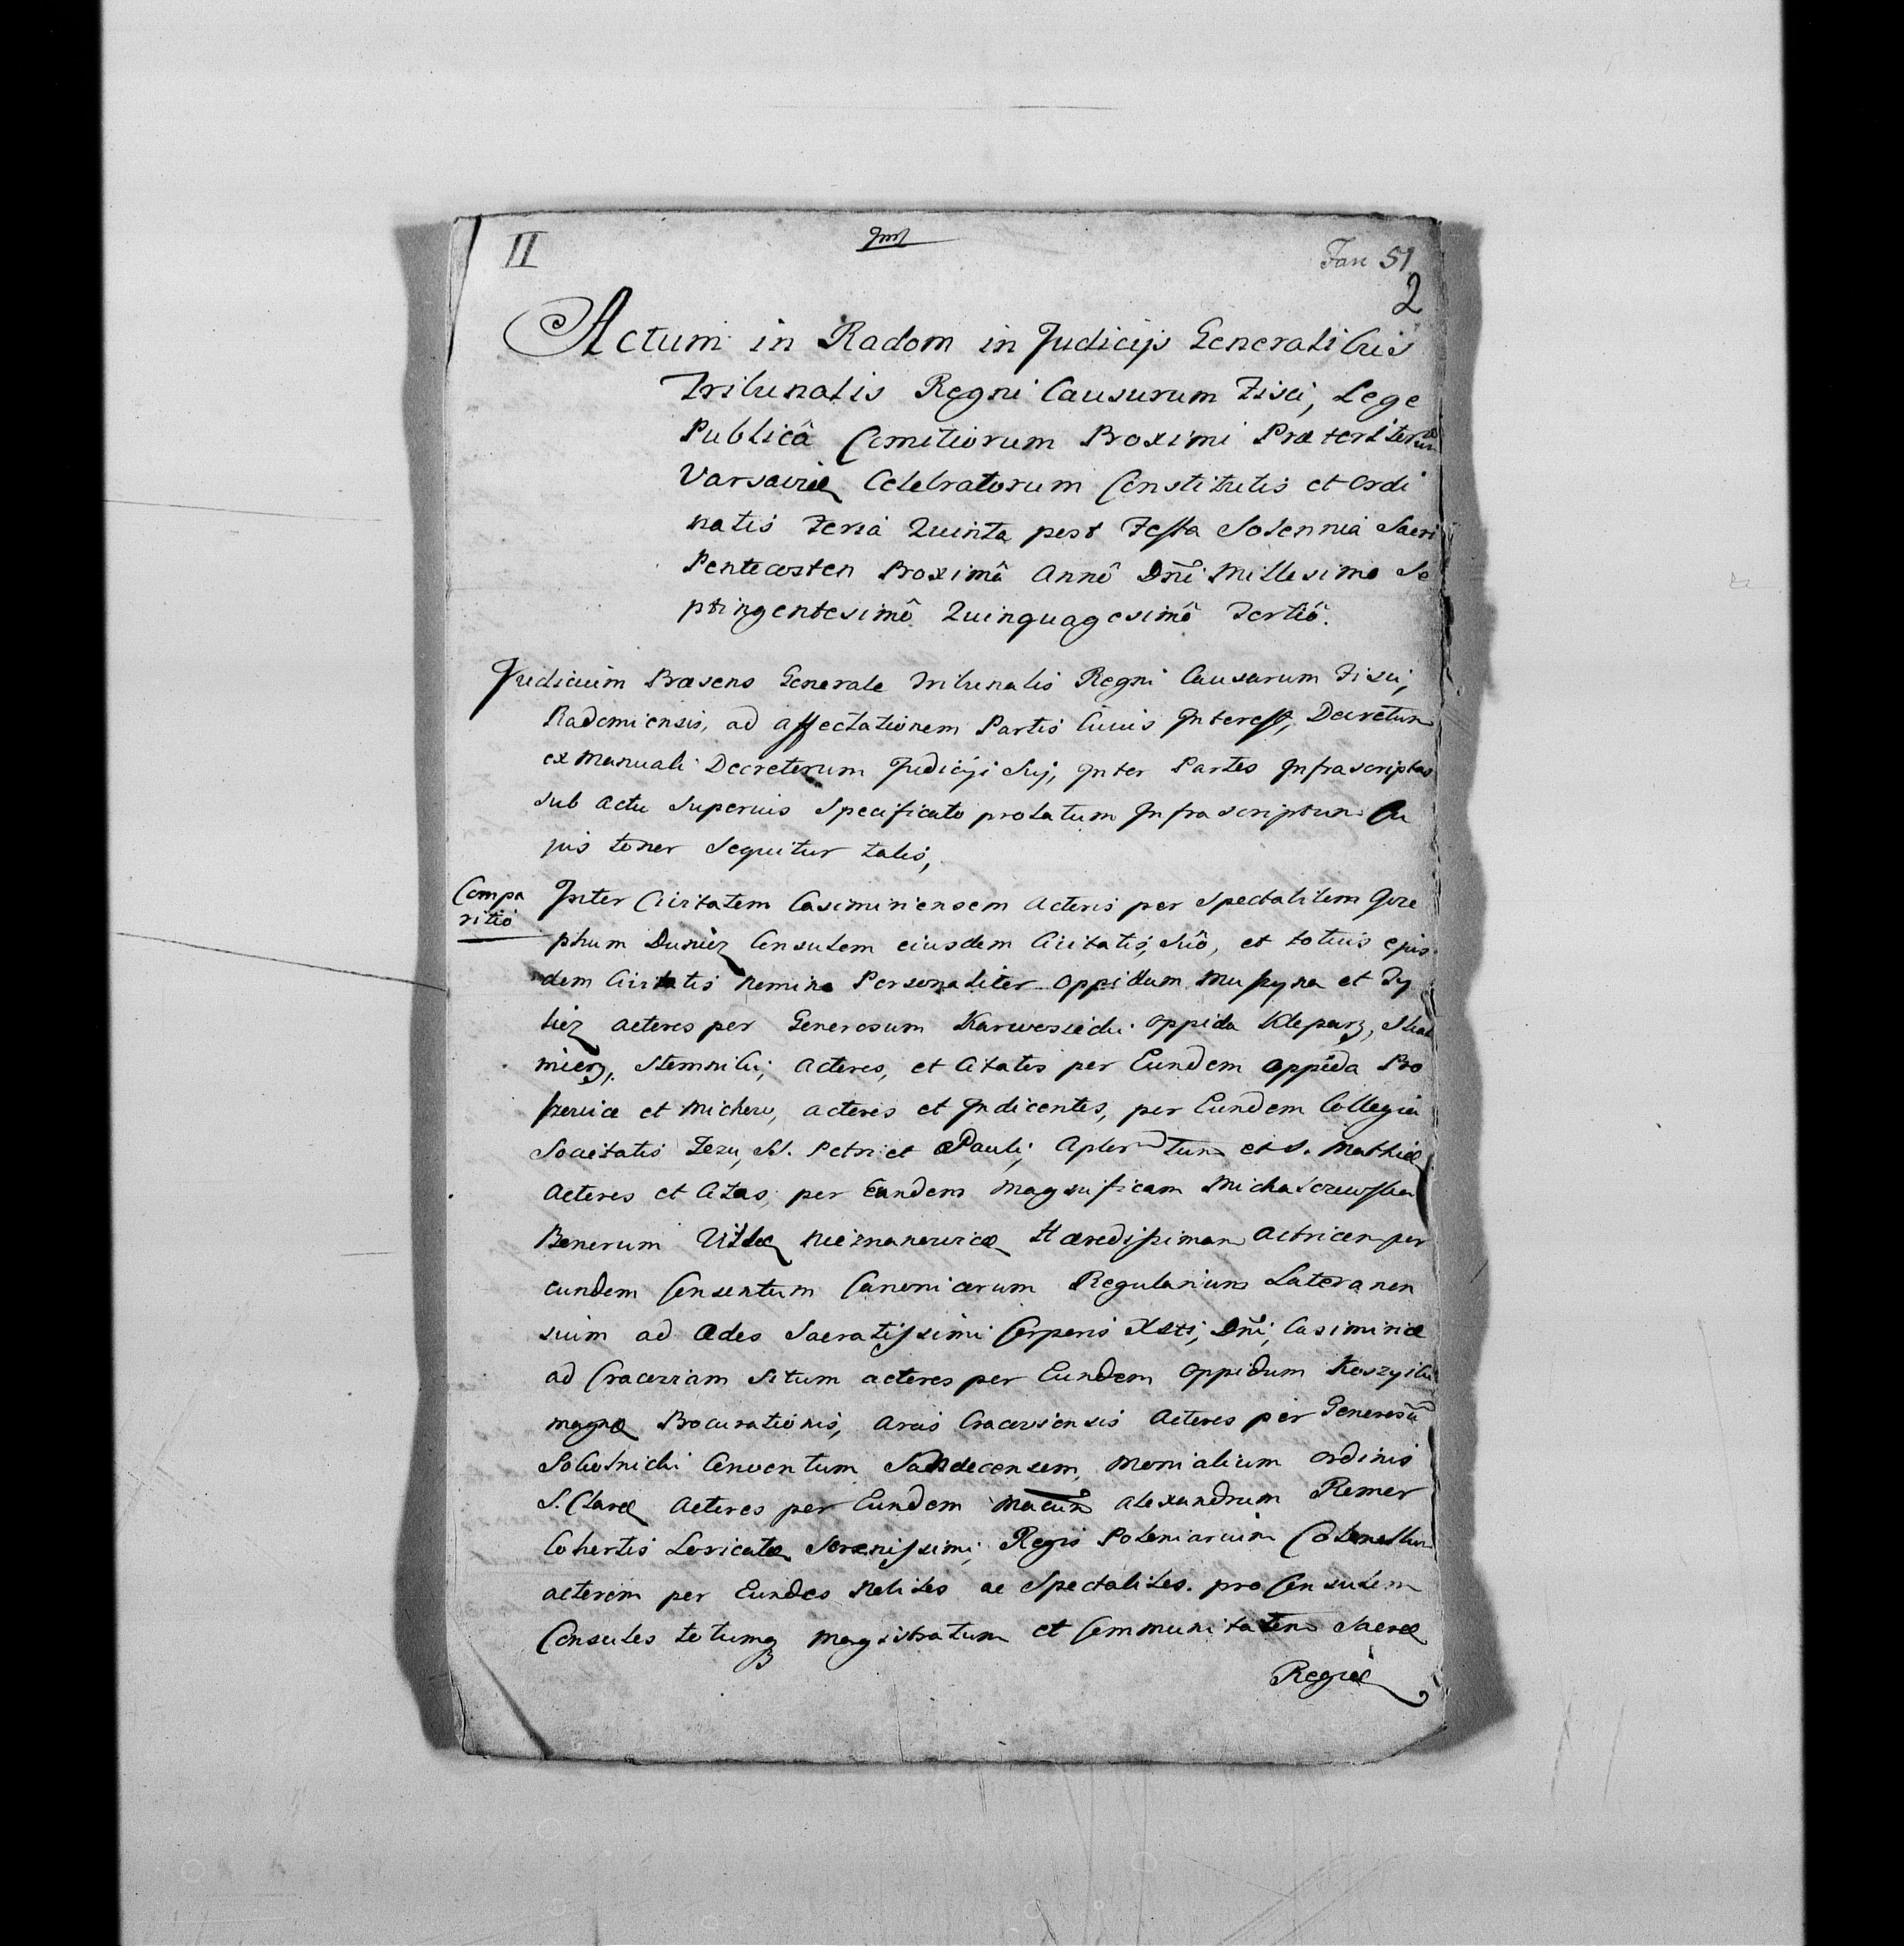 II
Fasc 51
2
Actum in Radom in Judicijs Generalibus
Tribunalis Regni Causarum Fisci, Lege
Publicâ Comitiorum Proximi Praeteritorum
Varsaviae Celebratorum Constitutis et Ordi
natis Feria Quinta post Festa Solennia Sacri
Pentecosten Proximâ Annô Dñi Millesimo Se
ptingentesimô Quinquagesimô Tertiô.
Judicium Praesens Generale Tribunalis Regni Causarum Fisci,
Radomiensis, ad affectationem Partis Cuius Interest, Decretum
ex Manuali Decretorum Judicij Sui, Inter Partes Infrascriptas
sub actu Superius Specificato prolatum Infrascriptum Cu
jus tenor Sequitur talis,
Compa
ritio
Inter Civitatem Casimiriensem Actores per Spectabilem Jose
phum Consulem eiusdem Civitatis, Suô, et totius ejus
dem Civitatis nomine Personaliter Oppidum Muszyna et Ty
licz actores per Generosum Karwosiecki Oppida Kleparz, Skal
mierz, Stemniki, Actores, et Citatis per Eundem Oppida Pro
szowice et Michow, actores et Indicentes, per Eundem Collegia
Societatis Jezu, SS. Petri et Pauli, et S. Mathiae
Actores et per Eundem Magnificam Michalczewska
Bonorum Villae Haeredissimam Actricem per
eundem Consentum Canonicorum Regularium Lateranen
sium ad Aedes Sacratissimi Corporis Xsti, Dñi, Casimiriae
ad Cracoviam Situm actores per Eundem Oppidum Koszyiki
magnae Procurationis, Arcis Cracoviensis Actores per Generosũ
Sobolnicki Conventum Sandecensem Monialium Ordinis
S. Clarae Actores per Eundem Alexandrum Remer
Cohortis Loricatae Serenissimi, Regis Poloniarum
actorem per Eundes Nobiles ac Spectabiles. pro Consulem
Consules totumq Magistratum et Communitatem Sacrae
Regiae